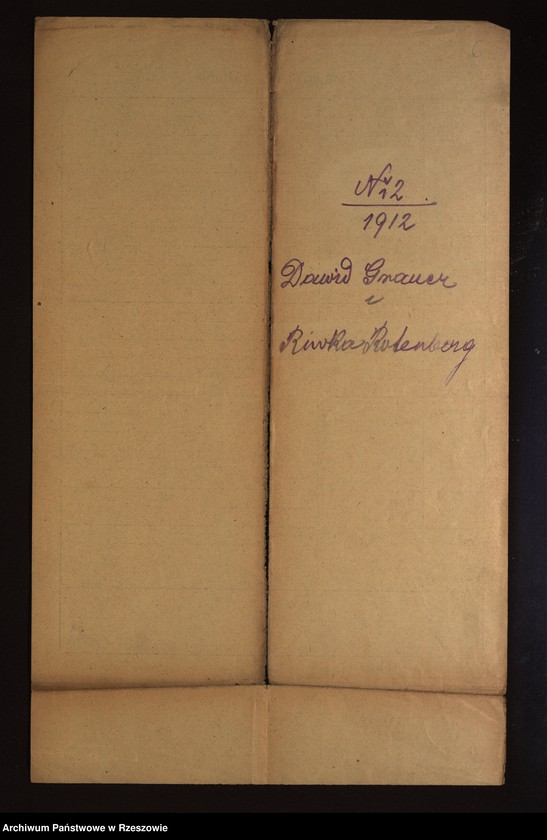 Nr 2
1912
Dawid Grauer
i
Riwka Rotenberg
Archiwum Państwowe w Rzeszowie